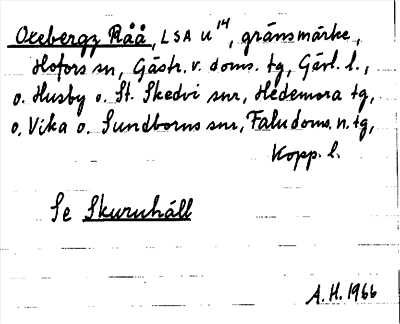 Ocebergz Råå, LSA U¹⁴, gränsmärke,
Hofors sn, Gästr. v. doms. tg, Gävl. l.,
o. Husby o. St. Skedvi snr, Hedemora tg,
o. Vika o. Sundborns snr, Falu doms. n. tg,
Kopp. l.
Se Skuruhäll
A.H. 1966